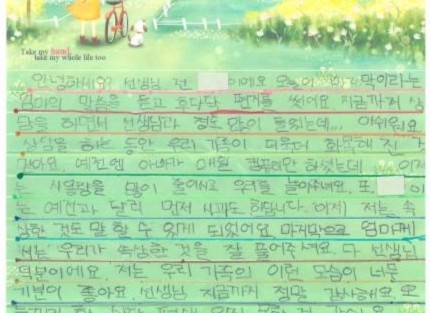 Take my hand
take my whole life too
안녕하세요? 선생님 전 이에요 오늘이 마지막이라는
엄마의 말씀을 듣고 후다닥 편지를 써요 지금까지 상
담을 하면서 선생님과 정도 많이 들었는데... 아쉬워요
상담을 하는 동안 우리 가족이 더욱더 화목해 진 것
같아요. 예전엔 아빠가 매일
는 많이 줄이시고 우리를 놀아주세요. 또, 이
는 예전과 달리 먼저 사과도 합니다. 이제 저는 속
상한 것도 말 할 수 있게 되었어요. 마지막으로 엄마께
서는 우리가 속상한 것을 잘 풀어주셔요. 다 선생님
덕분이에요. 저는 우리 가족의 이런 모습이 너무
기분이 좋아요. 선생님 지금까지 정말 감사해요. 오